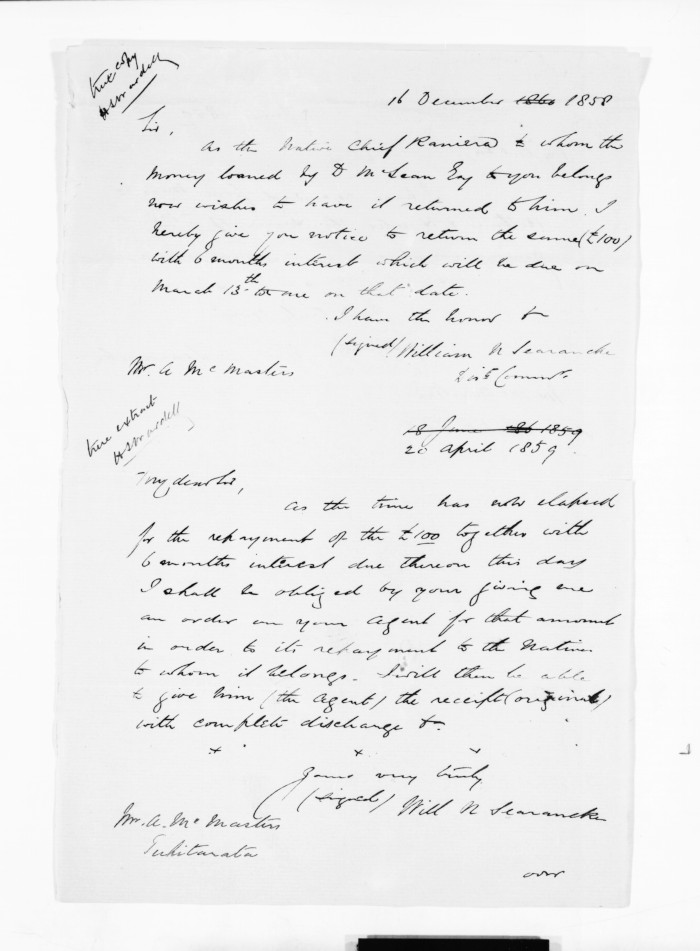 true copy
HS Wardell
16 December 1860 1858
Sir,
As the Native Chief Raniera to whom the
money loaned by D McLean Esq to you belongs
now wishes to have it returned to him. I
hereby give you notice to return the same (£100)
with 6 months interest which will be due on
March 13th to me on that date.
I have the honor &
(signed) William N Searancke
Dist. Commr.
Mr. A McMasters
true extract
HS Wardell
18 June 186 1859
20 April 1859.
My dear Sir,
As the time has now elapsed
for the repayment of the £100 together with
6 months interest due thereon this day
I shall be obliged by your giving me
an order on your Agent for that amount
in order to its repayment to the Native
to whom it belongs. I will then be able
to give him (the Agent) the receipt (original)
with complete discharge &.
x x x
Yours very truly
(signed) Will N Searancke
Mr. A. McMasters
Tuhitarata
over